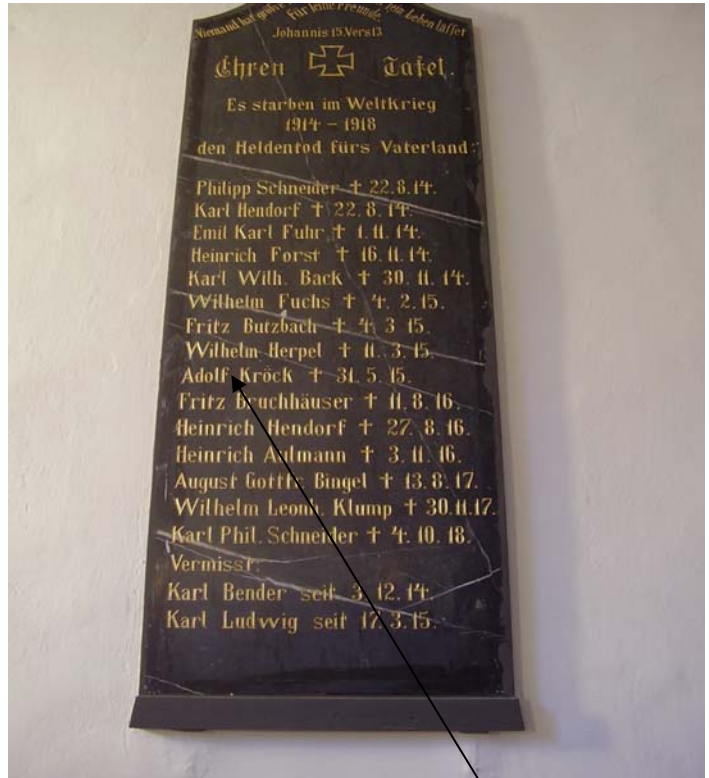 Niemand hat größre Leben lasset
Für seine Freunde.
Johannis 15. Vers 13
Ehren Tafel.
Es starben im Weltkrieg
1914 - 1918
den Heldentod fürs Vaterland:
Philipp Schneider † 22. 8. 14.
Karl Hendorf † 22. 8. 14.
Emil Karl Fuhr † 1. 11. 14.
Heinrich Forst † 16. 11. 14.
Karl Wilh. Back † 30. 11. 14.
Wilhelm Fuchs † 4. 2. 15.
Fritz Butzbach † 4. 3 15.
Wilhelm Herpel † 11. 3. 15.
Adolf Kröck † 31. 5. 15.
Fritz Bruchhäuser † 11. 8. 16.
Heinrich Hendorf † 27. 8. 16.
Heinrich Aulmann † 3. 11. 16.
August Gottfr. Bingel † 13. 8. 17.
Wilhelm Leonh. Klump † 30. 11. 17.
Karl Phil. Schneider † 4. 10. 18.
Vermisst:
Karl Bender seit 3. 12. 14.
Karl Ludwig seit 17. 3. 15.